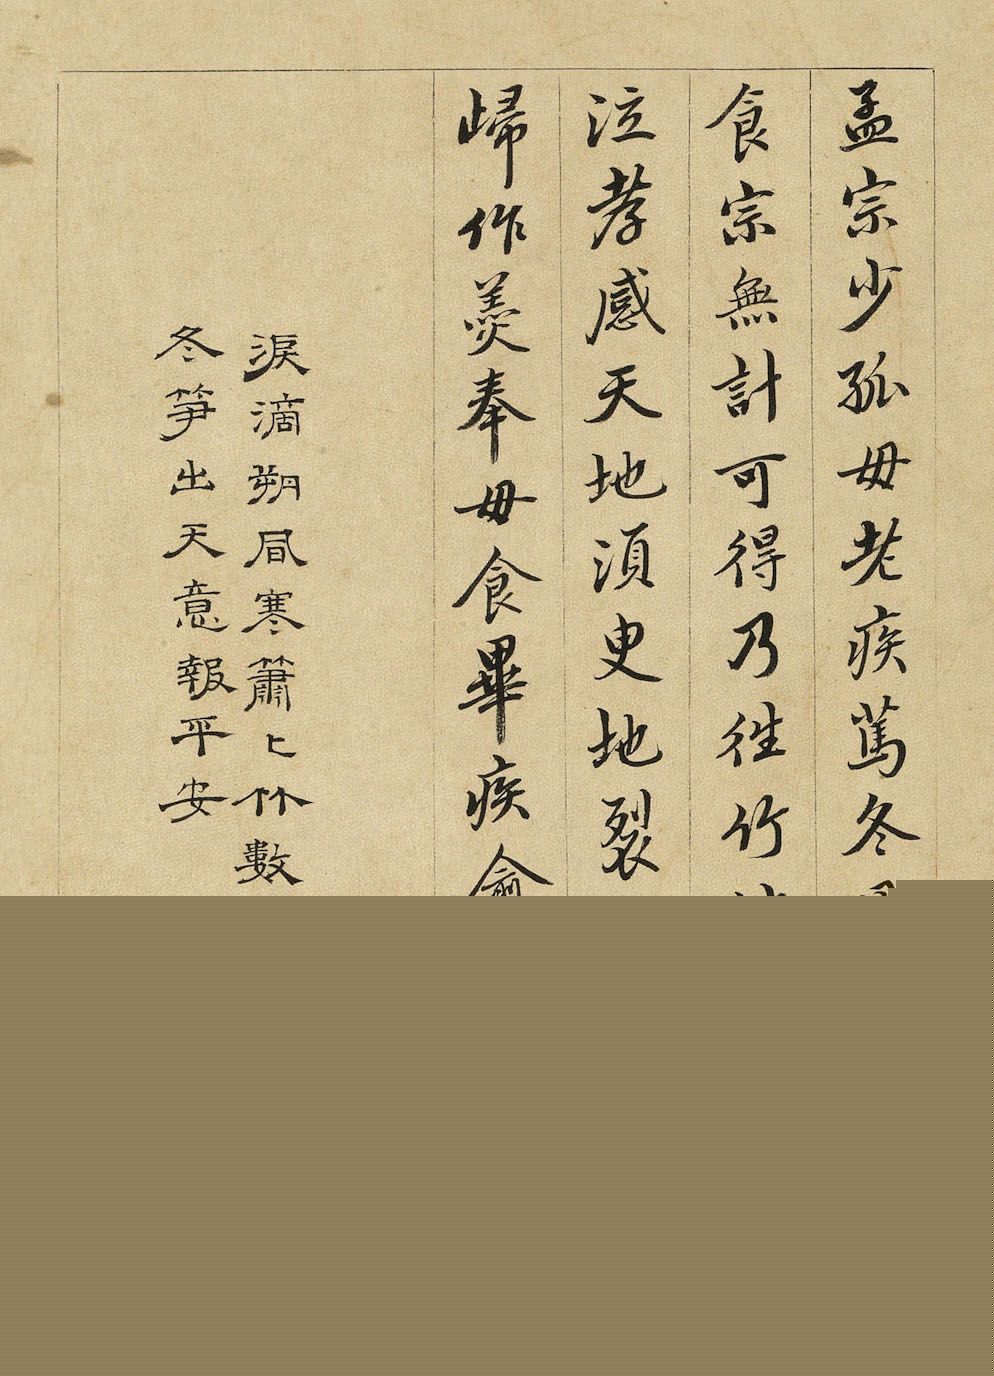 孟宗少孤母老疾篤冬
食宗無計可得乃徃竹
泣孝感天地湏臾地裂
歸作羮奉母食畢疾愈
淚滴朔風寒簫〻竹數
冬笋出天意報平安